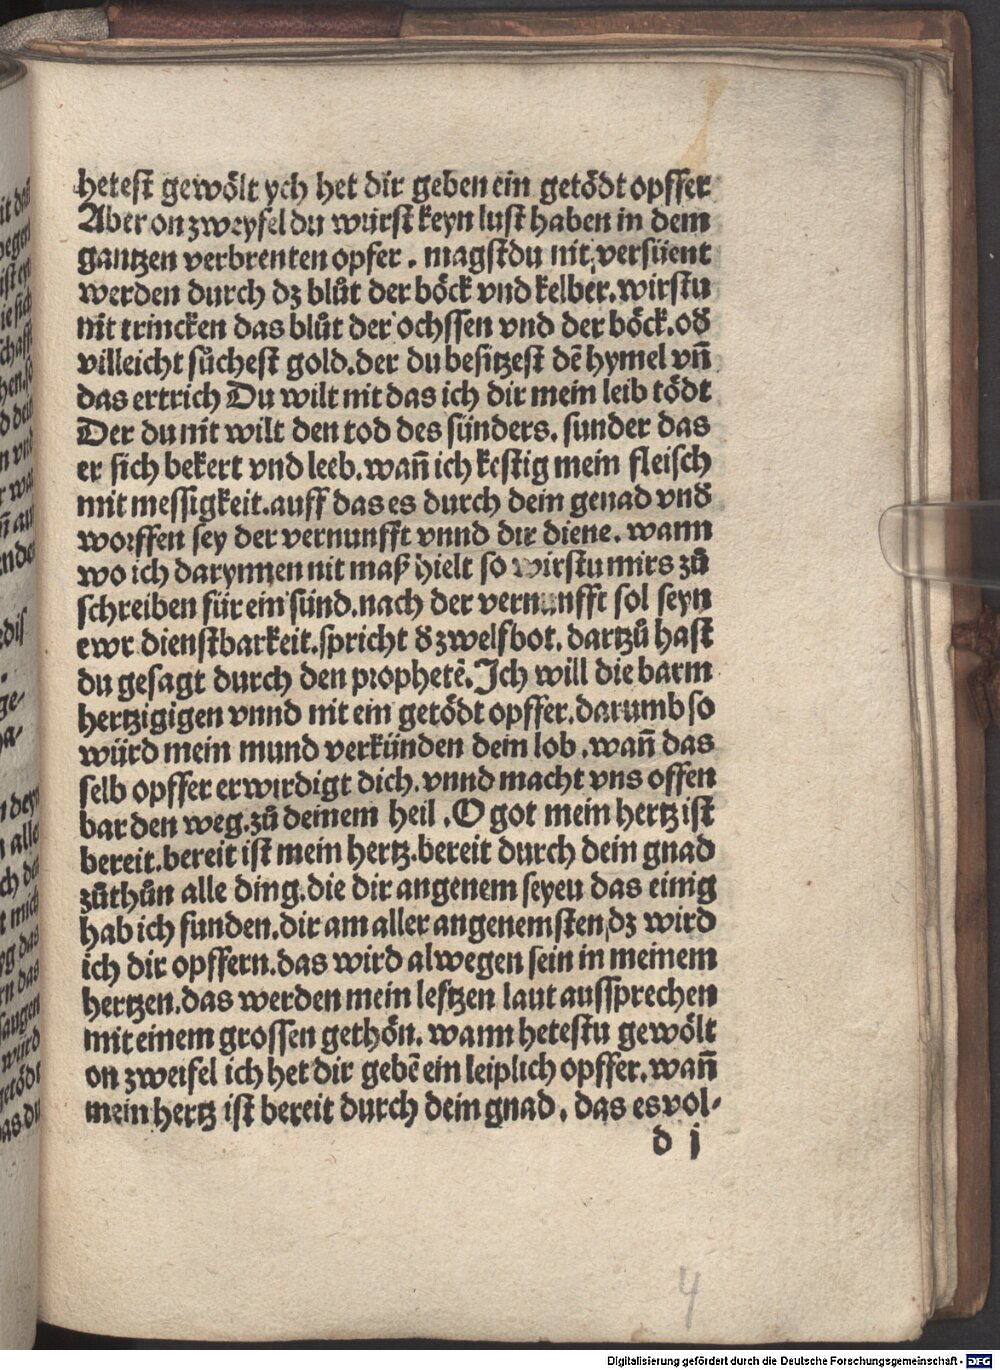 hetest gewölt ych het dir geben ein getödt opffer
Aber on zweyfel du würst keyn lust haben in dem
gantzen verbrenten opfer . magstdu nit versüent
werden durch dz blůt der böck vnd kelber. wirstu
nit trincken das blůt der ochssen vnd der böck. oď
villeicht sůchest gold. der du besitzest dē hymel vn̄
das ertrich Du wilt nit das ich dir mein leib tödt
Der du nit wilt den tod des sünders. sunder das
er sich bekert vnd leeb. wan̄ ich kestig mein fleisch
mit messigkeit. auff das es durch dein genad vnď
worffen sey der vernunfft vnnd dir diene. wann
wo ich darynnen nit maß hielt so wirstu mirs zů
schreiben für ein sünd. nach der vernunfft sol seyn
ewr dienstbarkeit. spricht ď zwelfbot. dartzů hast
du gesagt durch den prophetē. Ich will die barm
hertzigigen vnnd nit ein getödt opffer. darumb so
würd mein mund verkünden dein lob . wan̄ das
selb opffer erwirdigt dich. vnnd macht vns offen
bar den weg. zů deinem heil . O got mein hertz ist
bereit. bereit ist mein hertz. bereit durch dein gnad
zůthůn alle ding. die dir angenem seyeu das einig
hab ich funden. dir am aller angenemsten dz wird
ich dir opffern. das wird alwegen sein in meinem
hertzen. das werden mein leftzen laut aussprechen
mit einem grossen gethön. wann hetestu gewölt
on zweifel ich het dir gebē ein leiplich opffer. wan̄
mein hertz ist bereit durch dein gnad . das es vol-
d j
4
Digitalisierung gefördert durch die Deutsche Forschungsgemeinschaft - DFG